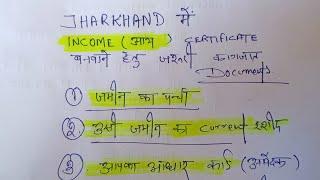 JHARKHAND में
INCOME (आय) CERTIFICATE
बनवाने हेतु जरुरी कागजात
Documents
① जमीन का पर्ची
2. उसी जमीन का current रसीद
③ आपका आधार कार्ड (आवेदक)